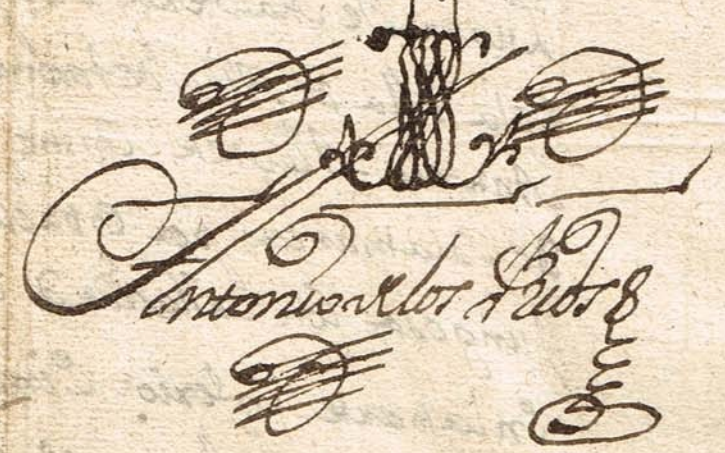 Antonio de los Rios